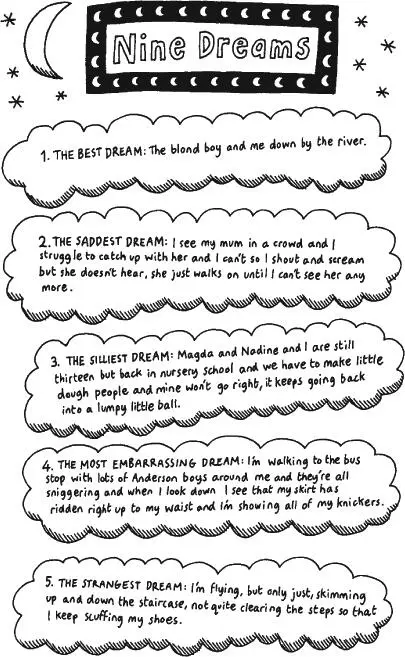 Nine Dreams
1. THE BEST DREAM: The blond boy and me down by the river.
2. THE SADDEST DREAM: I see my mum in a crowd and I
struggle to catch up with her and I can't so I shout and scream
but she doesn't hear, she just walks on until I can't see her any
more.
3. THE SILLIEST DREAM: Magda and Nadine and I are still
thirteen but back in nursery school and we have to make little
dough people and mine won't go right, it keeps going back
into a lumpy little ball.
4. THE MOST EMBARRASSING DREAM: I'm walking to the bus
stop with lots of Anderson boys around me and they're all
sniggering and when I look down I see that my skirt has
ridden right up to my waist and I'm showing all of my knickers.
5. THE STRANGEST DREAM: I'm flying, but only just, skimming
up and down the staircase, not quite clearing the steps so that
I keep scuffing my shoes.